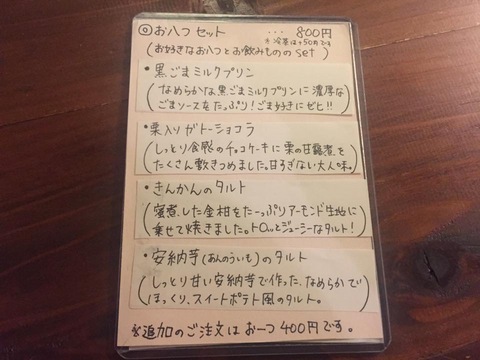 ◎お八つセット ･･･ 800円
※冷茶は+50円です
(お好きなお八つとお飲みものの set)
・黒ごまミルクプリン
(なめらかな黒ごまミルクプリンに濃厚な
ごまソースをたっぷり!ごま好きにゼヒ!!)
・栗入りガトーショコラ
(しっとり食感のチョコケーキに栗の甘露煮を
たくさん敷きつめました。甘すぎない大人味。)
・きんかんのタルト
(蜜煮した金柑をたーっぷりアーモンド生地に
乗せて焼きました。トロッとジューシーなタルト!)
・安納芋(あんのういも)のタルト
(しっとり甘い安納芋で作った、なめらかで
ほっくり、スイートポテト風のタルト。)
※追加のご注文はお一つ400円です。